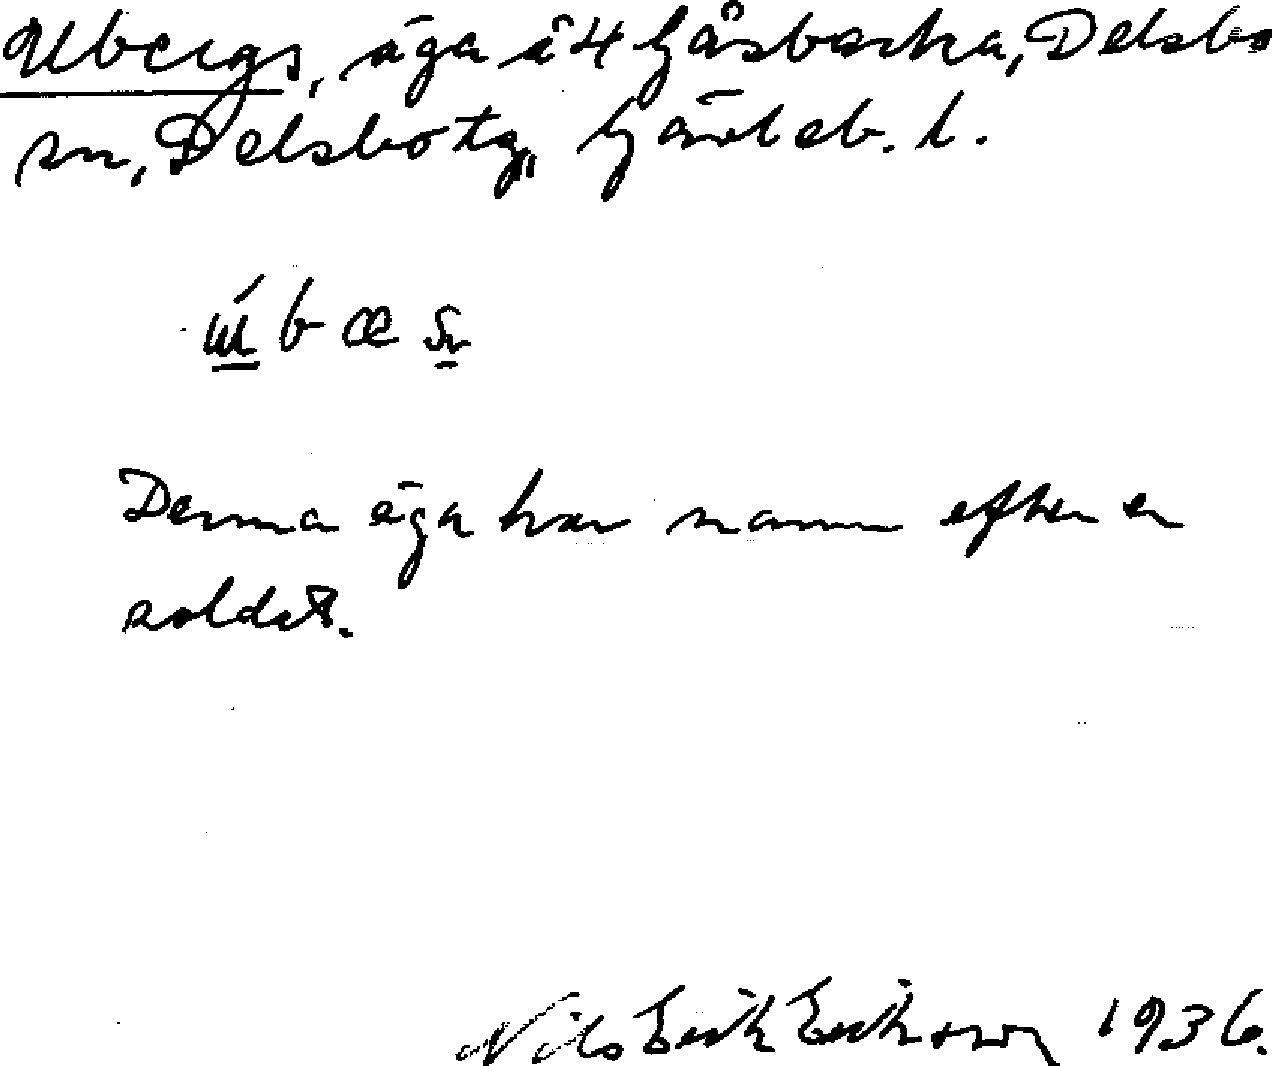 Ulbergs, äga i 4 Gåsbacka, Delsbo
sn, Delsbo tg, Gävleb. l.
Denna äga har namn efter en
soldat.
Nils Erik Eriksson 1936.